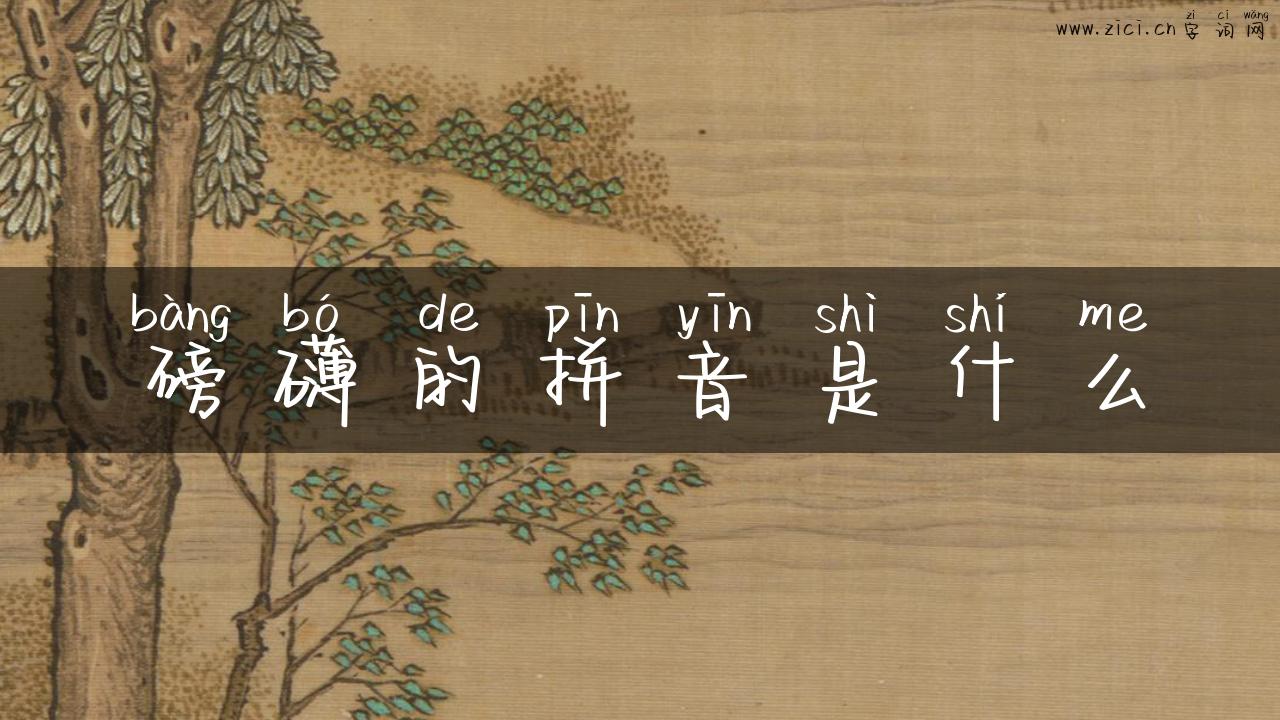 zì cí wǎng
www.zici.cn 字词网
bàng bó de pīn yīn shì shí me
磅礴的拼音是什么